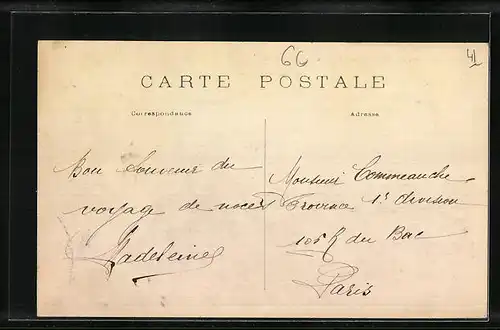 66
41
CARTE POSTALE
Correspondance
Adresse
Bon Souvenir du
voyage de noces
Madeleine
Monsieur Commeauche
Province 1e division
105 R du Bac
Paris